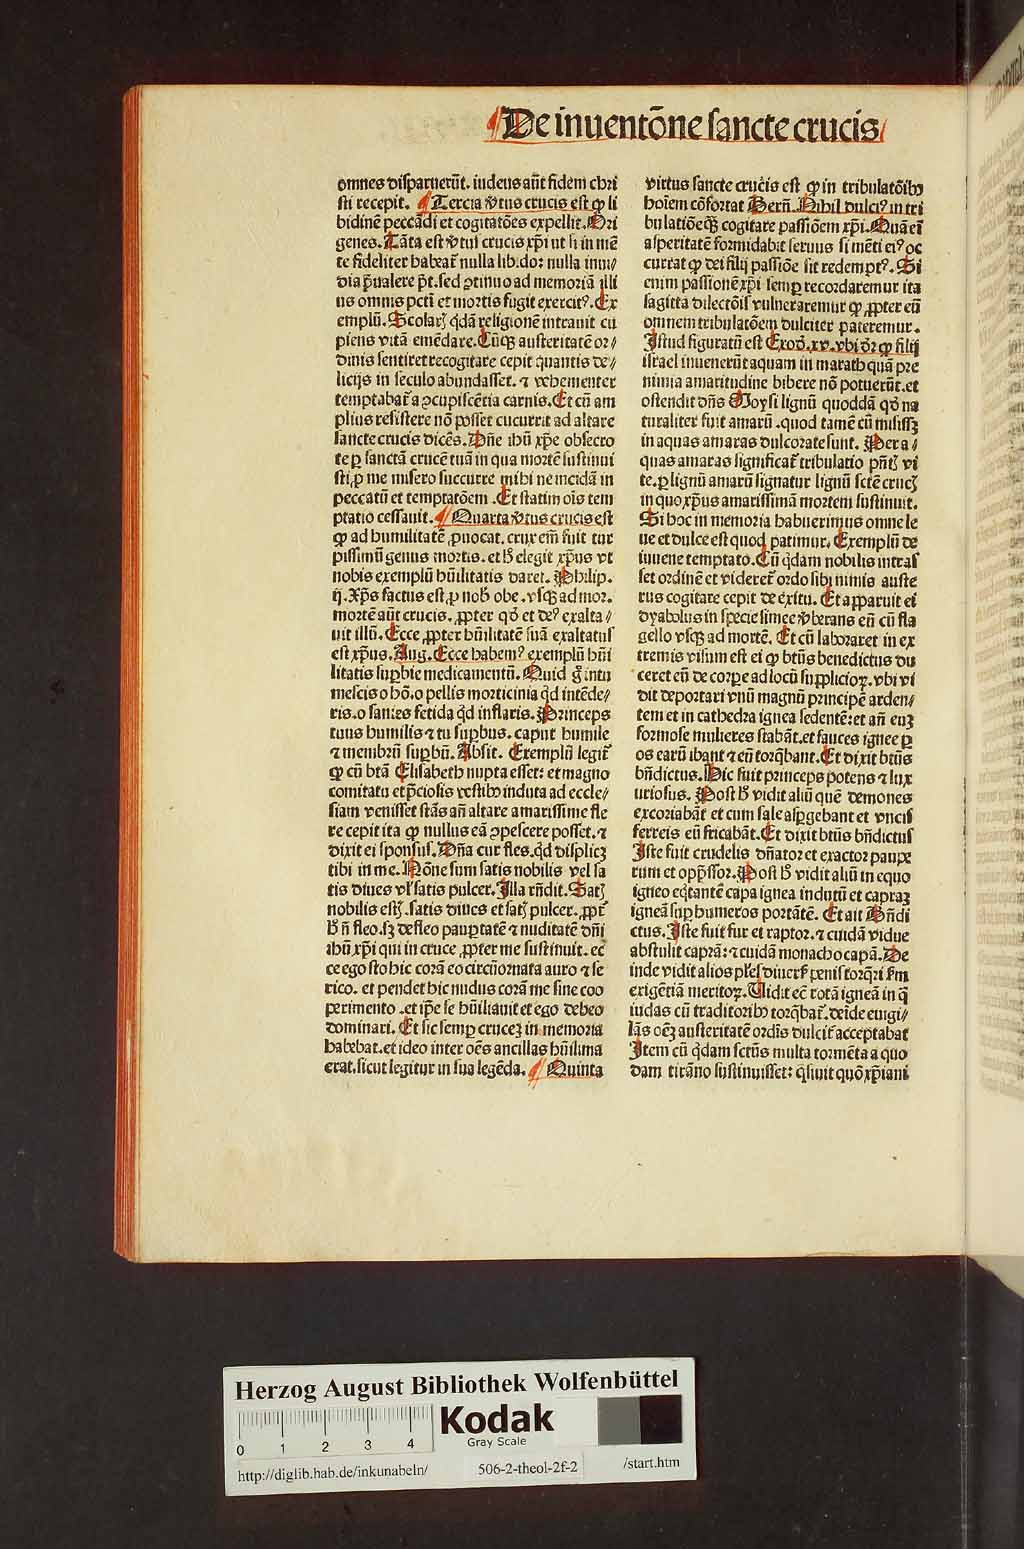 De inuentõne sancte crucis
omnes disparuerũt. iudeus aũt fidem chri
sti recepit. Tercia v̾tus crucis est ꝙ li
bidinẽ peccãdi et cogitatões expellit. Ori
genes. Tãta est v̾tus crucis xp̃i ut si in mẽ
te fideliter habeat᷑ nulla libido: nulla inui⸗
dia p̃ualere põt. sed ꝯtinuo ad memoriã illi
us omnis pctĩ et mortis fugit exercit⁹. Ex
emplũ. Scolarꝭ q̃dã religionẽ intrauit cu
piens vitã emẽdare. Cũqꝫ austeritatẽ or⸗
dinis sentiret recogitare cepit quantis de⸗
licijs in seculo abundasset. ⁊ vehementer
temptabat᷑ a ꝯcupiscẽtia carnis. Et cũ am
plius resistere nõ posset cucurrit ad altare
sancte crucis dicẽs. Dñe ihũ xp̃e obsecro
te ꝑ sanctã crucẽ tuã in qua mortẽ sustinui
sti, ꝓ me misero succurre mihi ne incidã in
peccatũ et temptatõem. Et statim oĩs tem
ptatio cessauit. Quarta v̾tus crucis est
ꝙ ad humilitatẽ ꝓuocat. crux em̃ fuit tur
pissimũ genus mortis. et hͦ elegit xp̃us vt
nobis exemplũ hũilitatis daret. Philip.
ij. Xp̃s factus est ꝓ nob̾ obe. vsqꝫ ad mor.
mortẽ aũt crucis. ꝓpter qd̾ et de⁹ exalta⸗
uit illũ. Ecce ꝓpter hũilitatẽ suã exaltatus
est xp̃us. Aug. Ecce habem⁹ exemplũ hũi
litatis supbie medicamentũ. Quid g̊ intu
mescis o hõ. o pellis morticinia qd̾ intẽde⸗
ris. o sanies fetida qd̾ inflaris. Princeps
tuus humilis ⁊ tu supbus. caput humile
⁊ membrũ supbũ. Absit. Exemplũ legit᷑
ꝙ cũ btã Elisabeth nupta esset: et magno
comitatu et p̃ciosis vestibꝰ induta ad eccle⸗
siam venisset stãs añ altare amarissime fle
re cepit ita ꝙ nullus eã ꝯpescere posset. ⁊
dixit ei sponsus. Dña cur fles. qd̾ displicꝫ
tibi in me. Nõne sum satis nobilis vel sa
tis diues vl̾ satis pulcer. Illa rñdit. Satꝭ
nobilis estꝭ. satis diues et satꝭ pulcer. ꝓpt᷑
hͦ ñ fleo. sꝫ defleo pauptatẽ ⁊ nuditatẽ dñi
ihũ xp̃i qui in cruce ꝓpter me sustinuit. ec
ce ego sto hic corã eo circũornata auro ⁊ se
rico. et pendet hic nudus corã me sine coo
perimento. et ip̃e se hũiliauit et ego debeo
dominari. Et sic semp crucẽ in memoria
habebat. et ideo inter oẽs ancillas hũilima
erat. sicut legitur in sua legẽda. Quinta
virtus sancte crucis est ꝙ in tribulatõibꝰ
hoĩem cõfortat Bern̄. Nihil dulci⁹ in tri
bulatiõe qꝫ cogitare passiõem xp̃i. Quã eĩ
asperitatẽ formidabit seruus si mẽti ei⁹ oc
currat ꝙ dei filij passiõe sit redempt⁹. Si
enim passionẽ xp̃i semp recordaremur ita
sagitta dilectõis vulneraremur ꝙ ꝓpter eũ
omnem tribulatõem dulciter pateremur.
Istud figuratũ est Exod̾. xv. vbi dr̃ ꝙ filij
israel inuenerũt aquam in marath quã pre
nimia amaritudine bibere nõ potuerũt. et
ostendit dñs Moysi lignũ quoddã qd̾ na
turaliter fuit amarũ. quod tamẽ cũ misissꝫ
in aquas amaras dulcorate sunt. Per a⸗
quas amaras significat᷑ tribulatio pñtꝭ vi
te. ꝑ lignũ amarũ signatur lignũ sctẽ crucꝭ
in quo xp̃us amarissimã mortem sustinuit.
Si hoc in memoria habuerimus omne le
ue et dulce est quod patimur. Exemplũ de
iuuene temptato. Cũ q̃dam nobilis intras
set ordinẽ et videret᷑ ordo sibi nimis auste
rus cogitare cepit de exitu. Et apparuit ei
dyabolus in specie simee v̾berans eũ cũ fla
gello vsqꝫ ad mortẽ. Et cũ laboraret in ex
tremis visum est ei ꝙ btũs benedictus du
ceret eũ de corpe ad locũ supplicioꝝ. vbi vi
dit deportari vnũ magnũ principẽ arden⸗
tem et in cathedra ignea sedentẽ: et añ euꝫ
formose mulieres stabãt. et fauces ignee ꝑ
os earũ ibant ⁊ eũ torq̃bant. Et dixit btũs
bñdictus. Hic fuit princeps potens ⁊ lux
uriosus. Post hͦ vidit aliũ quẽ demones
excoriabãt et cum sale aspgebant et vncis
ferreis eũ fricabãt. Et dixit btũs bñdictus
Iste fuit crudelis dñator et exactor paupe
rum et opp̃ssor. Post hͦ vidit aliũ in equo
igneo eq̃tantẽ capa ignea indutũ et capraꝫ
igneã sup humeros portãtẽ. Et ait Bñdi
ctus. Iste fuit fur et raptor. ⁊ cuidã vidue
abstulit caprã: ⁊ cuidã monacho capã. De
inde vidit alios pl̃es diuers̾ penis torq̃ri s̾m
exigẽtiã meritoꝝ. Uidit ec̃ rotã igneã in q̃
iudas cũ traditoribꝰ torq̃bat᷑. deĩde euigi⸗
lãs oẽꝫ austeritatẽ ordĩs dulcit᷑ acceptabat
Item cũ q̃dam sctũs multa tormẽta a quo
dam tirãno sustinuisset: q̃siuit quõ xp̃iani
Herzog August Bibliothek Wolfenbüttel
Kodak
Gray Scale
0 1 2 3 4
http://diglib.hab.de/inkunabeln/ 506-2-theol-2f-2 /start.htm